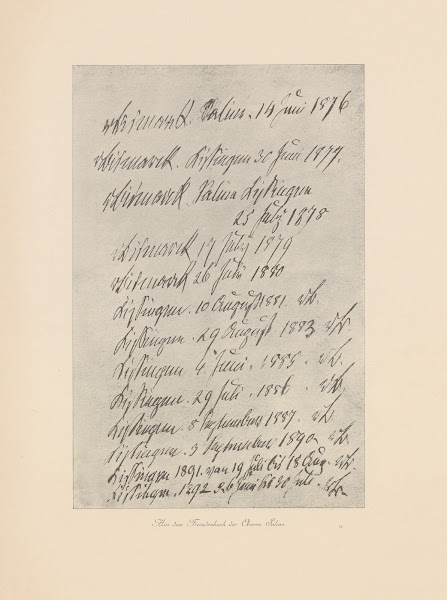 vBismarck. Saline. 14 Juni 1876
vBismarck. Kissingen 30 Juni 1877.
vBismarck. Saline Kissingen
25 July 1878
vBismarck 17 July 1879
vBismarck 26 Juli 1880
Kissingen. 10 August 1881 vB.
Kissingen. 29 August. 1883 vB.
Kissingen 4 Juni. 1885. vB.
Kissingen. 29 Juli. 1886. vB
Kissingen. 8 September 1887. vB
Kissingen. 3 September 1890 vB.
Kissingen 1891. von 19 Juli bis 18 Aug. vB.
Kissingen. 1892 Juni bis 30 Juli. vB
Aus dem Fremdenbuch der Oberen Saline.